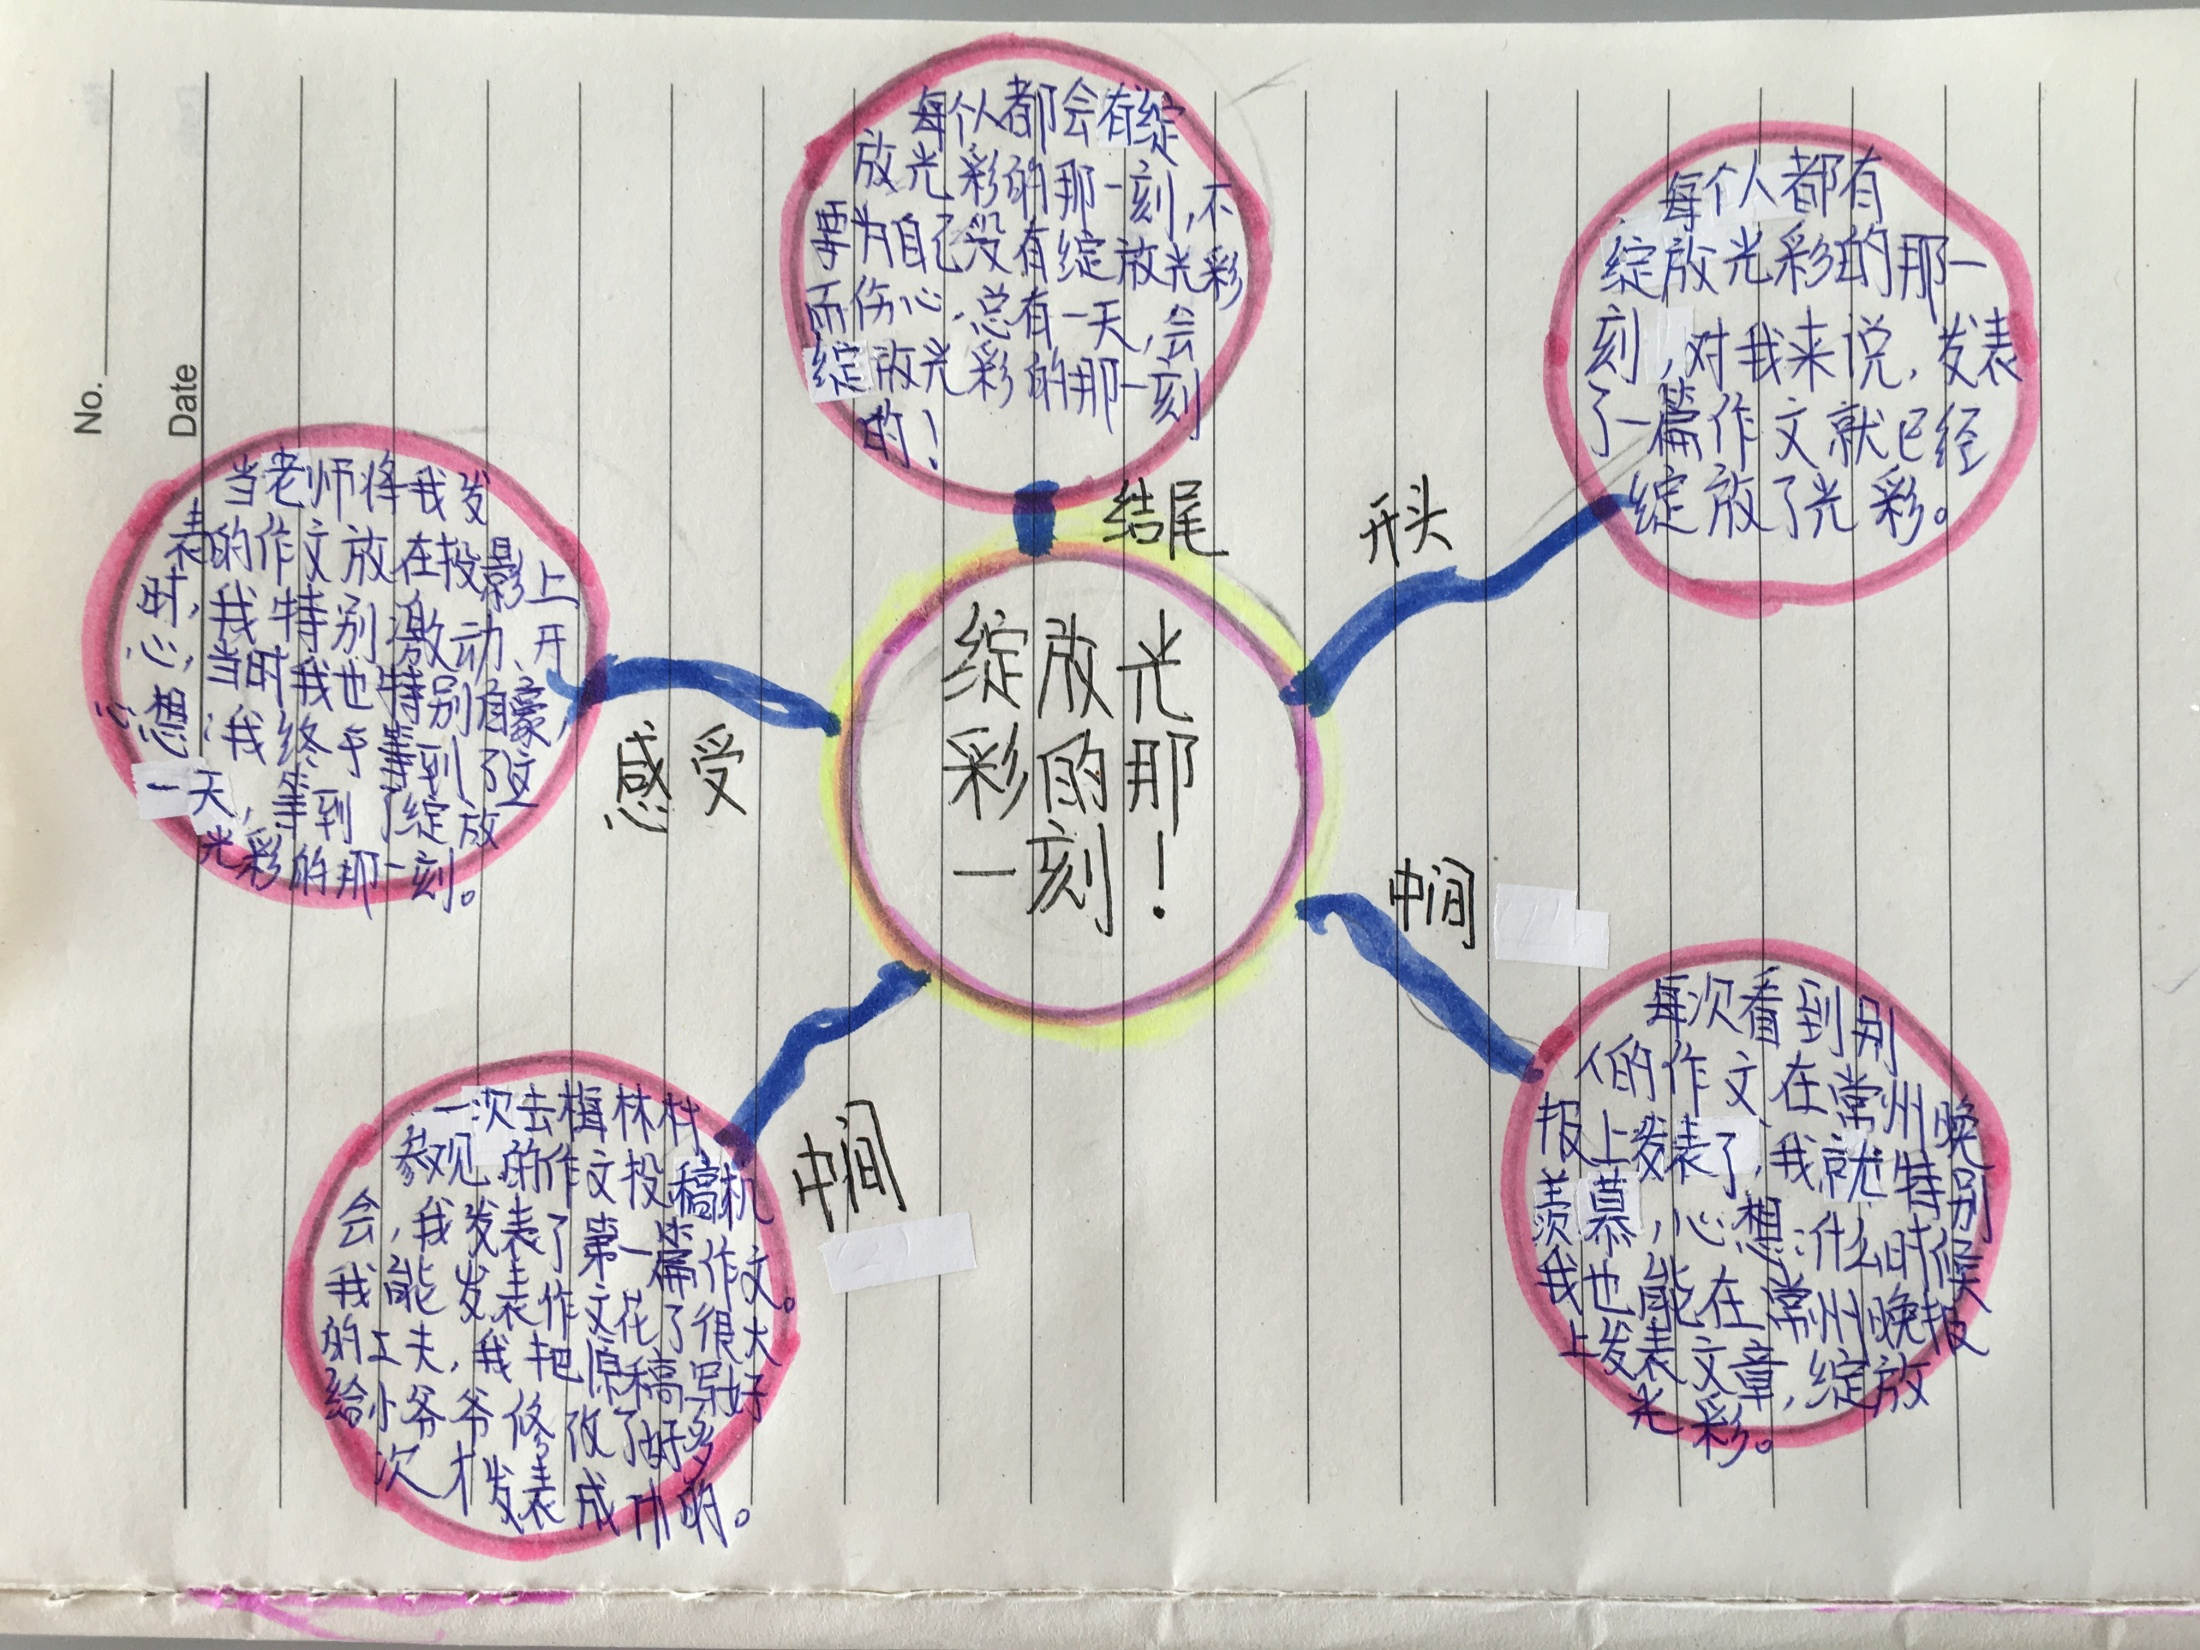 绽放光
彩的那
一刻！
开头
每个人都有
绽放光彩的那一
刻，对我来说，发表
了一篇作文就已经
绽放了光彩。
中间
每次看到别
人的作文在常州晚
报上发表了，我就特别
羡慕，心想：什么时候
我也能在常州晚报
上发表文章，绽放
光彩。
中间
一次去梅林村
参观的作文投稿机
会，我发表了第一篇作文。
我能发表作文花了很大
的工夫，我把原稿写好
给小爷爷修改了好多
次才发表成功的。
感受
当老师将我发
表的作文放在投影上
时，我特别激动、开
心，当时我也特别自豪，
心想：我终于等到了这
一天，等到了绽放
光彩的那一刻。
结尾
每个人都会有绽
放光彩的那一刻，不
要为自己没有绽放光彩
而伤心，总有一天，会
绽放光彩的那一刻
的！
No.
Date